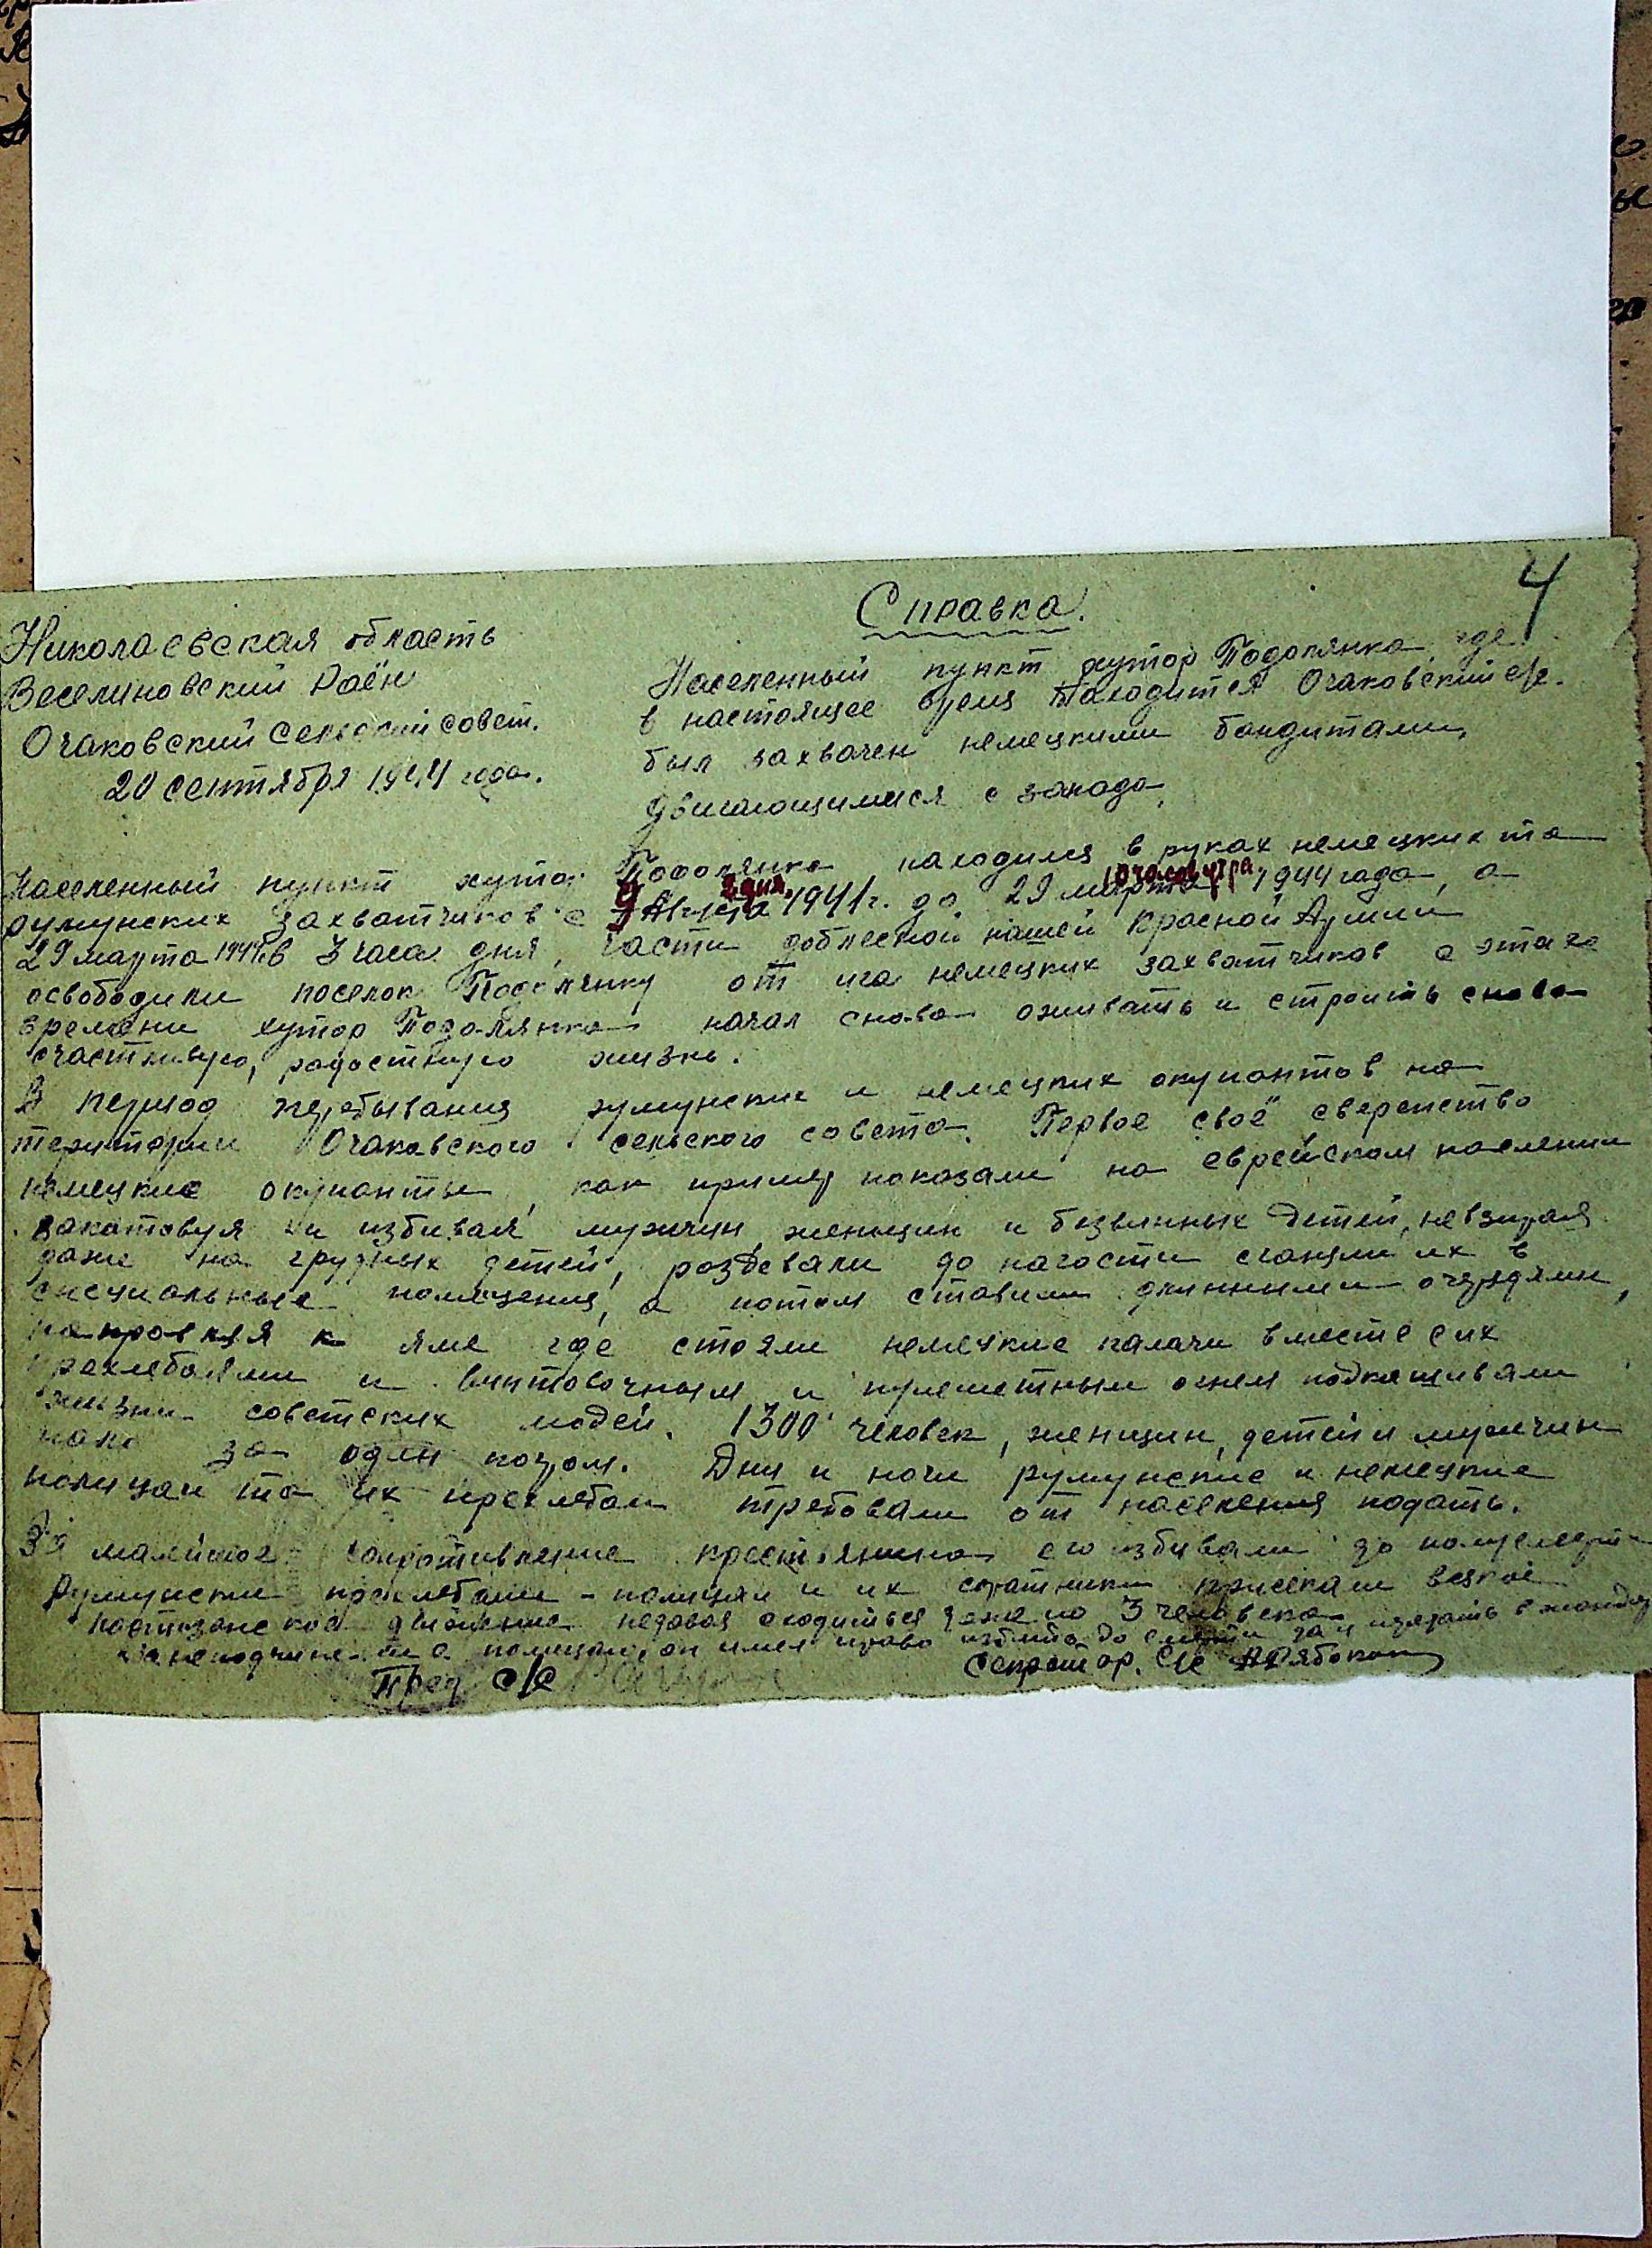 4
Справка.
Николаевская область
Веселиновский Раён
Очаковский сельский совет.
20 сентября 1944 года.
Населенный пункт хутор Подолянка где
в настоящее время находится Очаковский с/с.
был захвачен немецкими бандитами,
двигающимися с запада,
Населенный пункт хутор Подолянка находился в руках немецких та
румунских захватчиков с 9 Августа 2 дня 1941 г. до 29 марта 10 часов утра 1944 года, а
29 марта 1944 г. в 3 часа дня, части доблестной нашей Красной Армии
освободили поселок Подолянку от ига немецких захватчиков с этаго
времени хутор Подолянка начал снова оживать и строить снова
счастливую, радостную жизнь.
В период перебывания румунских и немецких окупантов на
територии Очаковского сельского совета. Первое своё сверепство
немецкие окупанты, как пример показали на еврейском населении
закатовуя и избивая мужчин, женщин и безвинных детей, невзирая
даже на грудных детей, роздевали до нагости сганяли их в
специальные помещения, а потом ставили длинными очередями,
направляя к яме где стояли немецкие палачи вместе с их
прехлебаями и винтовочным и пулеметным огнем подкашивали
жизни советских людей. 1300 человек, женщин, детей и мужчин
пало за один погром. Дни и ночи румунские и немецкие
полицаи та их прехлебаи требовали от населения подать.
За малейшое сопротивление крестянина его избивали до полусмерти
Румунски прехлебаи - полицаи и их стратники присекали всякое
партизанское движение недавая сходиться даже по 3 человека
за неподчине полицаю, он имел право избивать до смерти
Пред с/с
Секретарь с/с